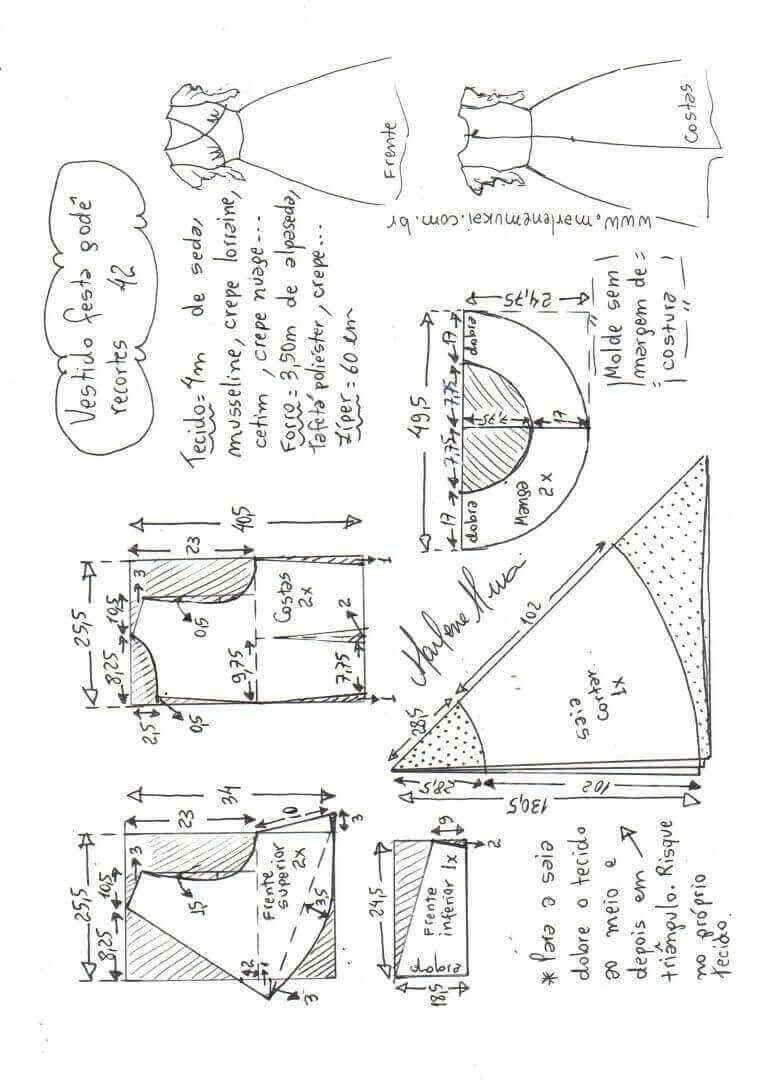 Vestido festa godê
recortes 42
Tecido = 4m de seda,
musseline, crepe lorraine,
cetim, crepe nuage...
Forro = 3,50m de alpaseda,
tafetá poliéster, crepe...
Zíper = 60 cm
Frente
Costas
www.marlenemukai.com.br
|Molde sem|
|margem de=
=|costura|
25,5
8,25
10,5
3
23
34
1,5
Frente
superior
2x
10
3
3,5
2
1
3
25,5
8,25
10,5
3
23
40,5
2,5
0,5
0,5
Costas
2x
9,75
7,75
2
1
1
49,5
17
7,75
7,75
17
dobra
dobra
7,75
17
24,75
Manga
2x
24,5
Frente
inferior 1x
dobra
18,5
9
2
28,5
102
28,5
102
130,5
saia
cortar
1x
* Para a saia
dobre o tecido
ao meio e
depois em
triângulo. Risque
no próprio
tecido.